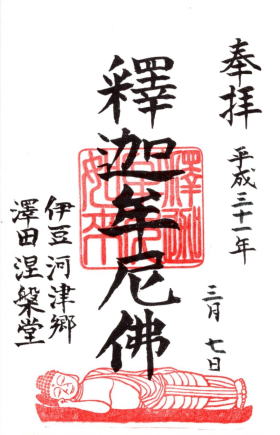 奉拝
平成三十一年
三月 七日
釋迦牟尼佛
伊豆 河津郷
澤田 涅槃堂